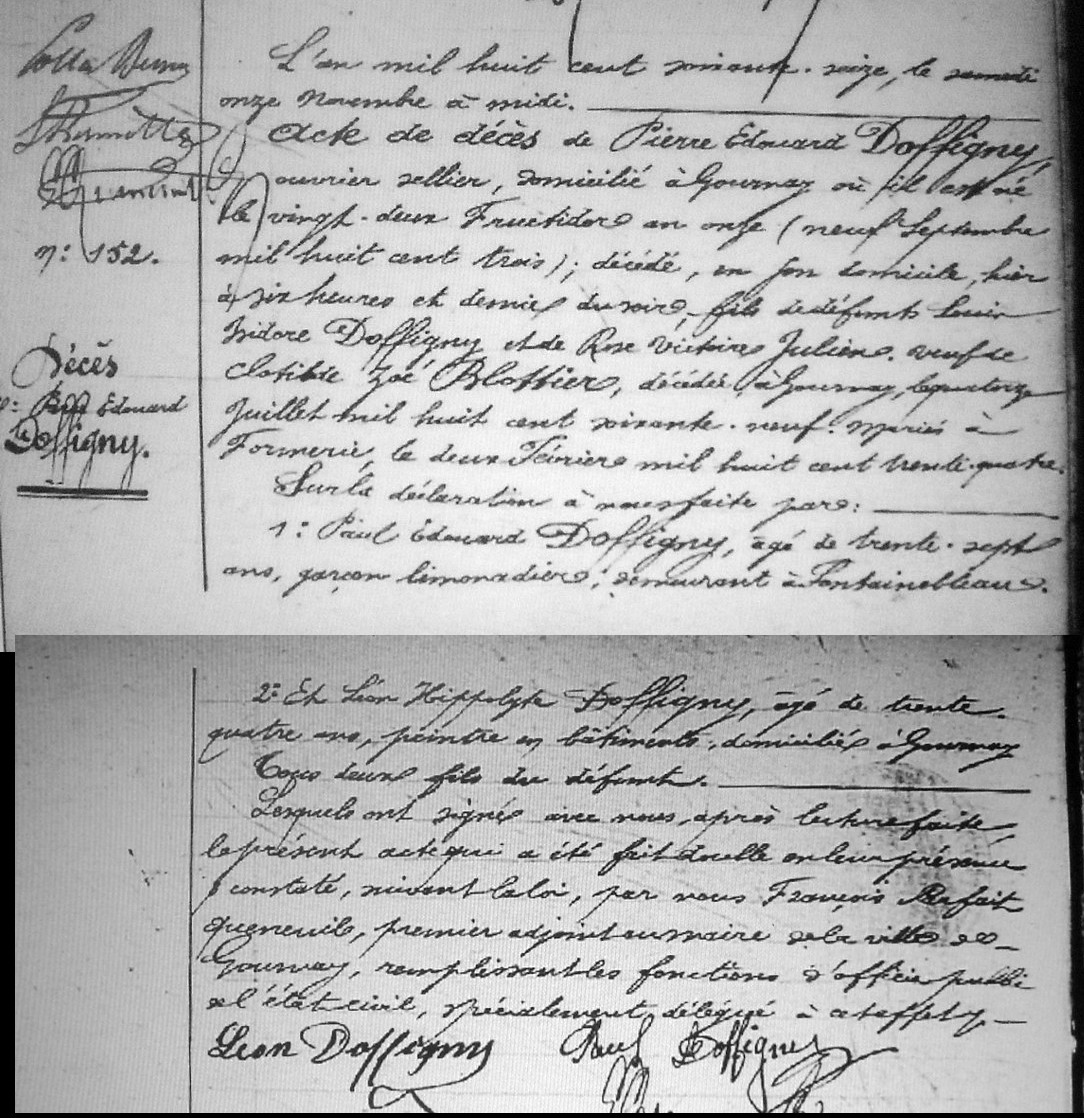 n: 152.
Décès
Edouard
Doffigny.
L'an mil huit cent soixante-seize, le samedi
onze Novembre à midi.
Acte de décès de Pierre Edouard Doffigny,
ouvrier sellier, domicilié à Gournay où il est né
le vingt-deux Fructidor an onze (neuf Septembre
mil huit cent trois); décédé, en son domicile, hier
à six heures et demie du soir, fils de défunts Louis
Isidore Doffigny et de Rose Victoire Julien. veuf de
Clotilde Zoé Blottier, décédée à Gournay, le quatorze
Juillet mil huit cent soixante-neuf. mariés à
Formerie, le deux Février mil huit cent trente-quatre.
Sur la déclaration à nous faite par:
1: Paul Edouard Doffigny, âgé de trente-sept
ans, garçon limonadier, demeurant à Fontainebleau.
2: Et Léon Hippolyte Doffigny, âgé de trente-
quatre ans, peintre en bâtiments, domicilié à Gournay
Tous deux fils du défunt.
Lesquels ont signé avec nous, après lecture faite,
le présent acte qui a été fait double en leur présence
constaté, suivant la loi, par nous François Parfait
premier adjoint au maire de la ville de
Gournay, remplissant les fonctions d'officier publi
de l'état civil, spécialement délégué à cet effet
Leon Doffigny Paul Doffigny